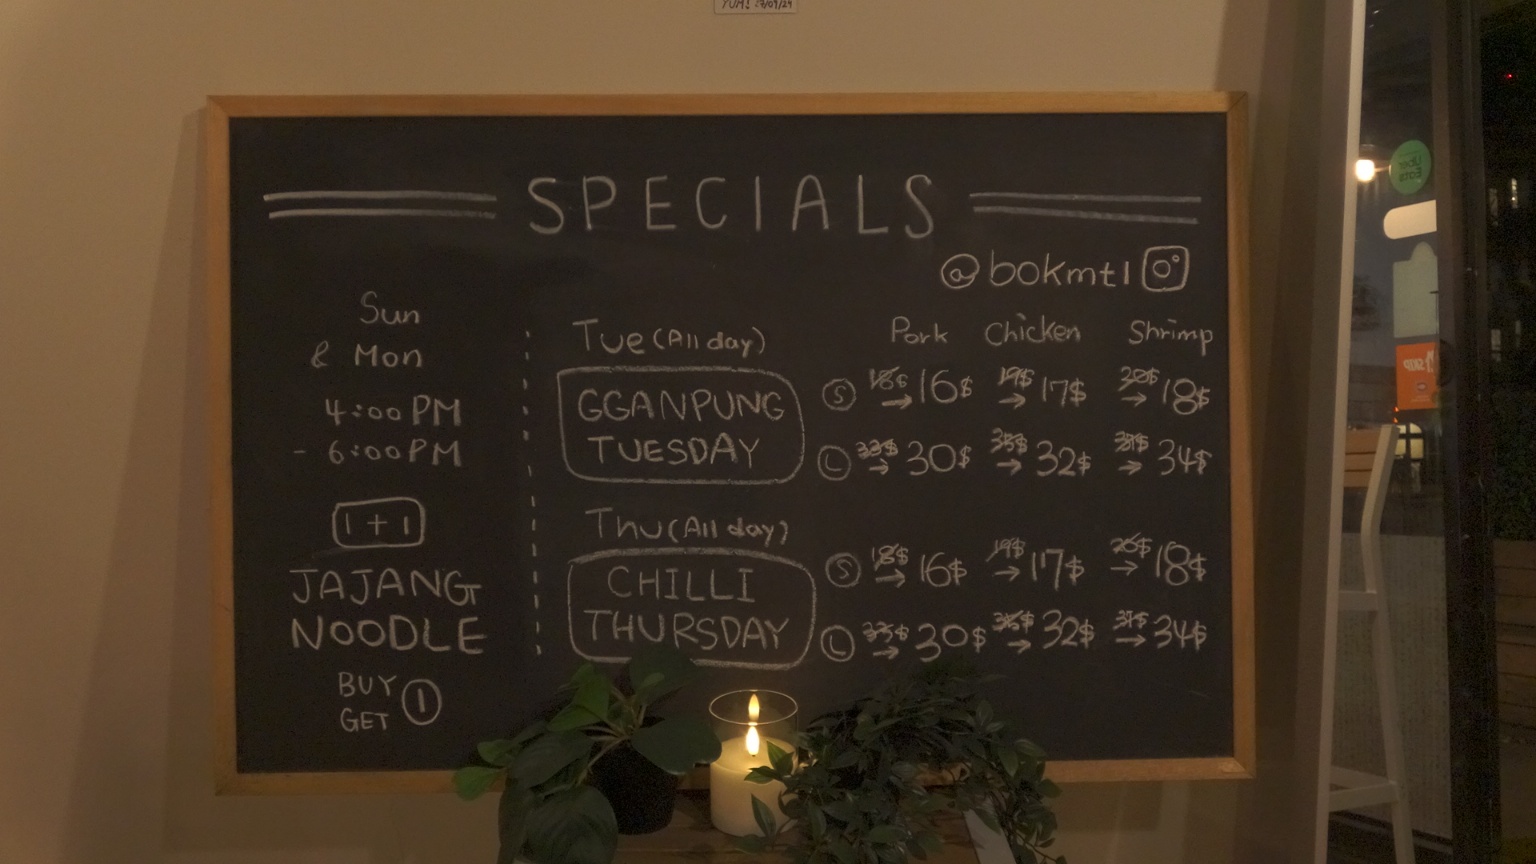 YUM!
SPECIALS
@bokmtl
Sun
& Mon
4:00 PM
- 6:00 PM
1 + 1
JAJANG
NOODLE
BUY 1
GET
Tue (All day)
GGANPUNG
TUESDAY
Pork Chicken Shrimp
S 18$ → 16$ 19$ → 17$ 20$ → 18$
L 33$ → 30$ 35$ → 32$ → 34$
Thu (All day)
CHILLI
THURSDAY
S 18$ → 16$ 19$ → 17$ 20$ → 18$
L 33$ → 30$ 35$ → 32$ → 34$
Uber
Eats
SKIP